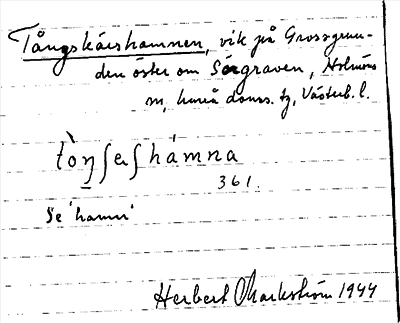 Tångskärshamnen, vik på Grossgrun-
den öster om Sörgraven, Holmöns
sn, Umeå doms. tg, Västerb. l.
tòŋʃaʃhámna
361.
Se 'hamn'
Herbert Markström 1944